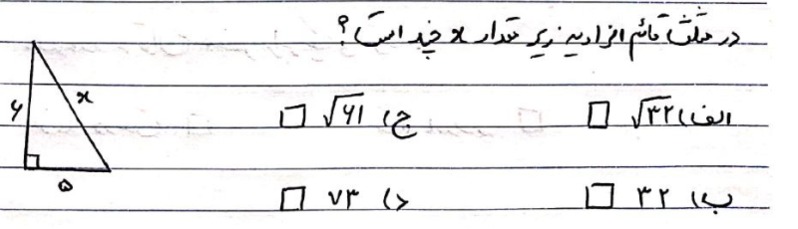 در مثلث قائم الزاویه زیر مقدار x چند است؟
الف) √۳۲ □ ج) √۶۱ □
ب) ۳۲ □ د) ۷۳ □
۶
x
۵